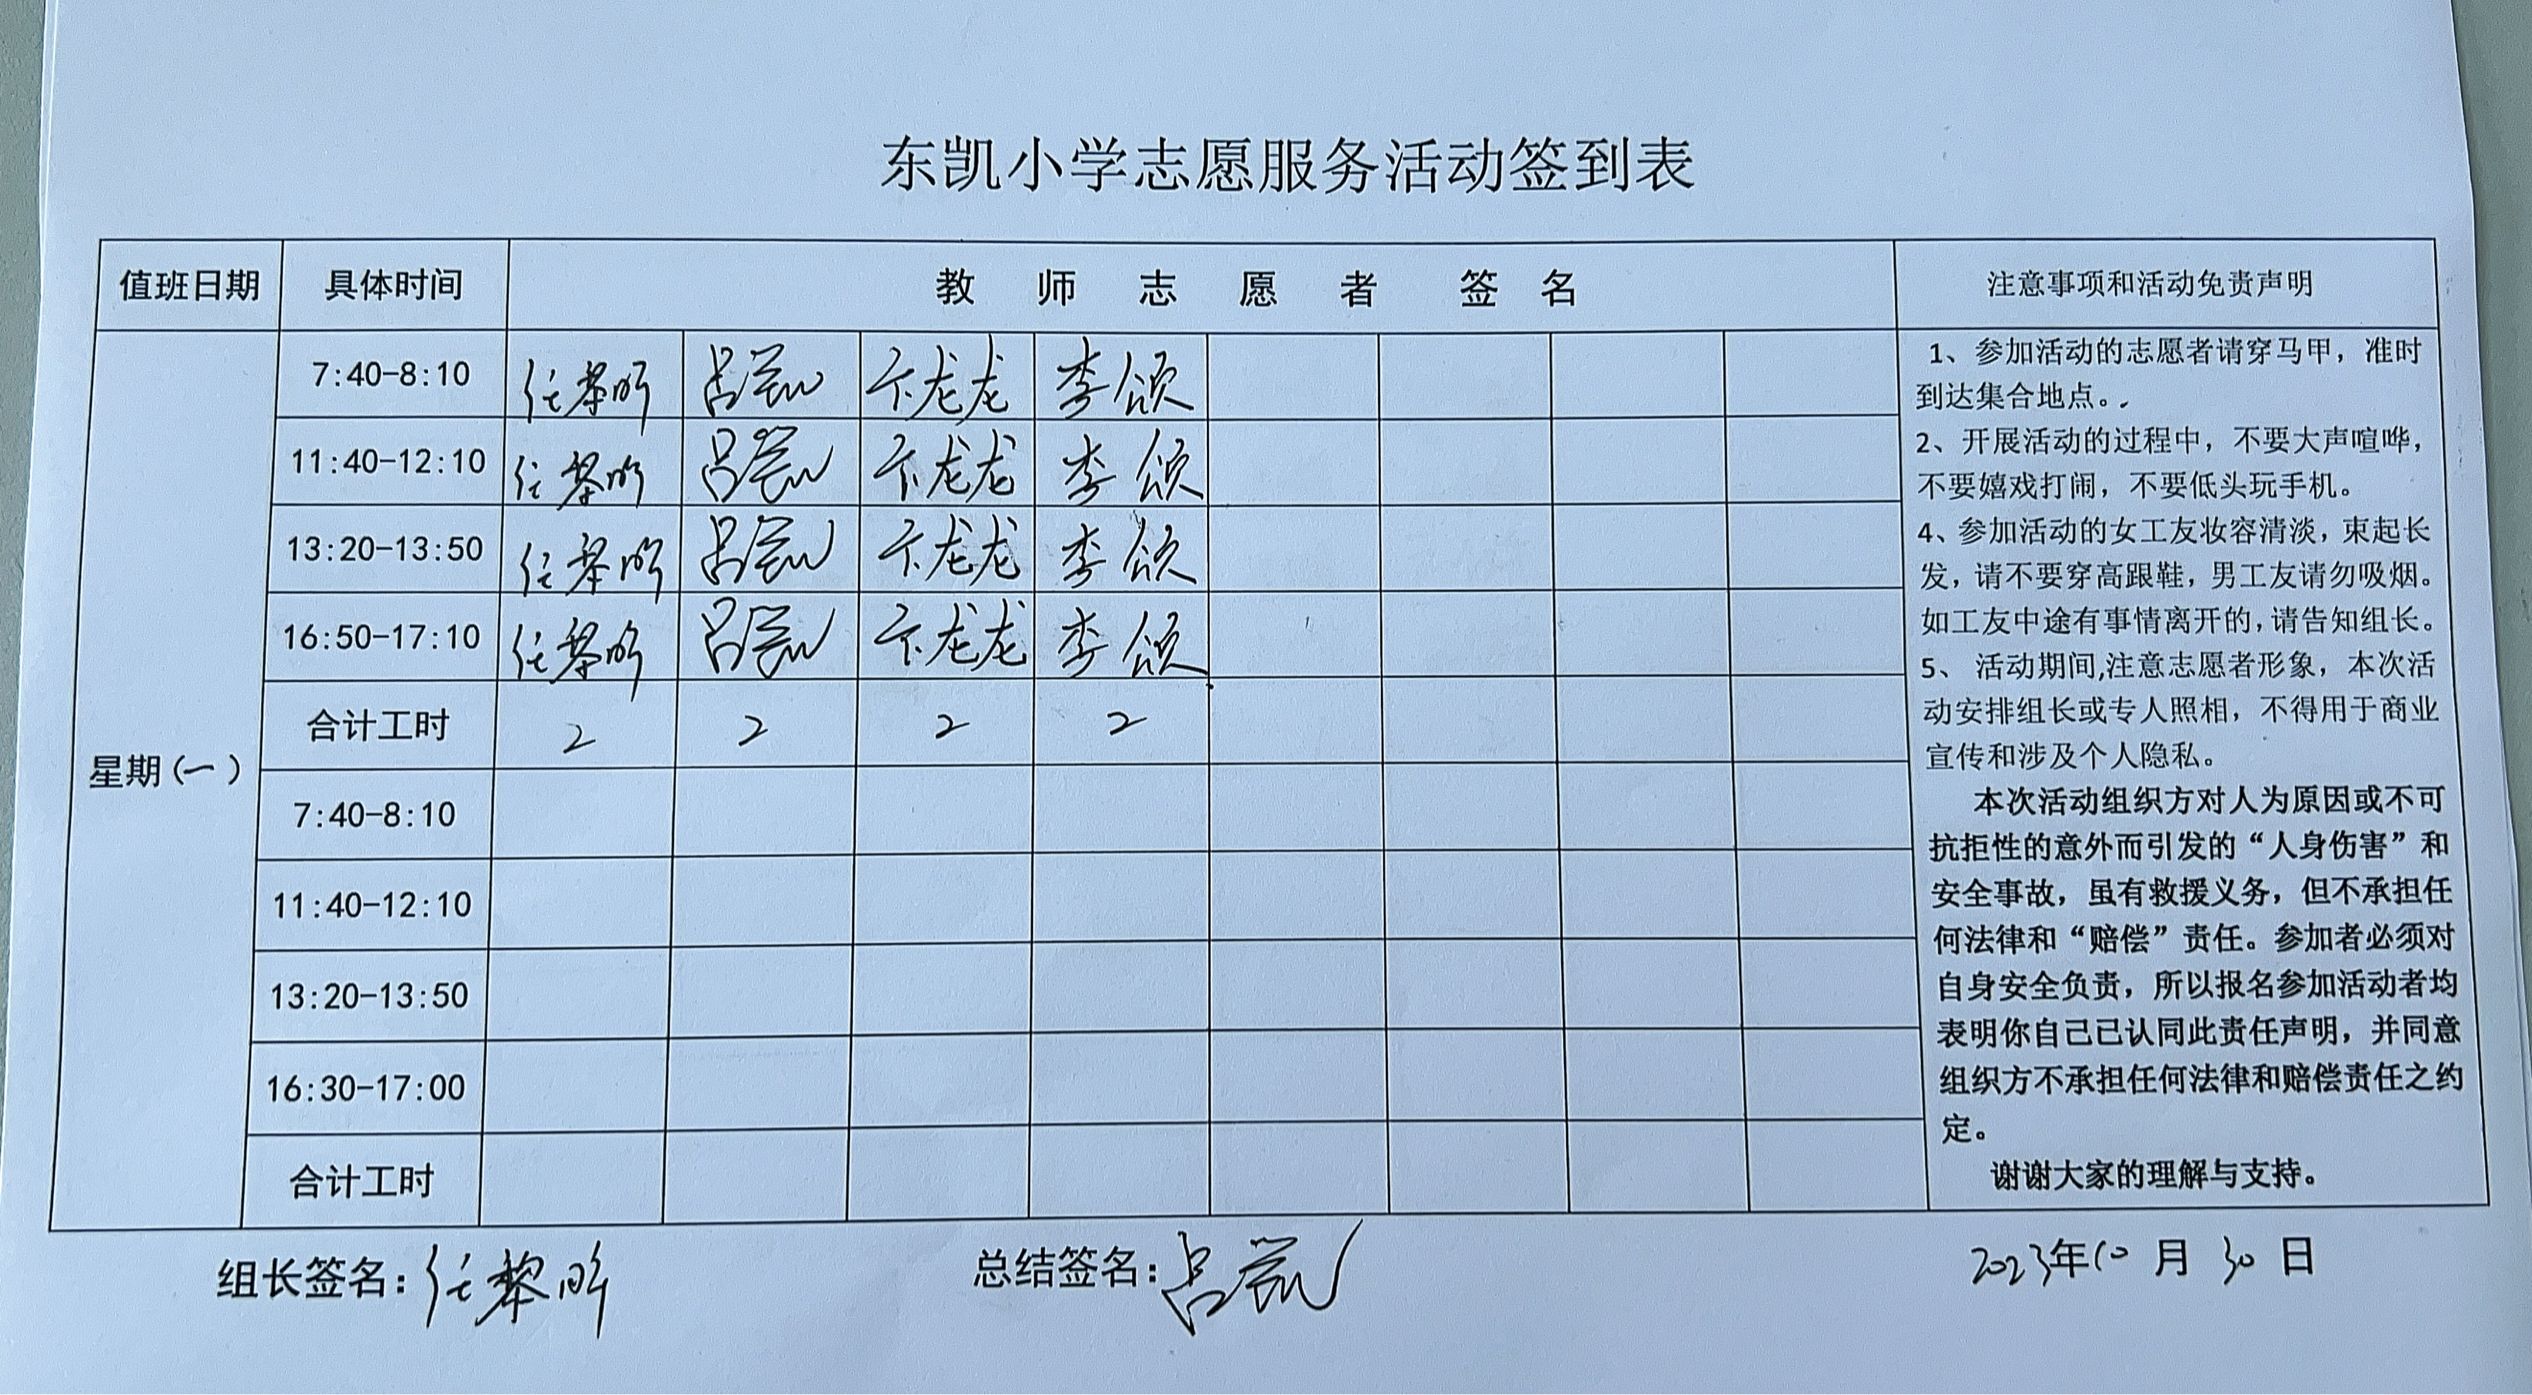 东凯小学志愿服务活动签到表
值班日期 具体时间 教师志愿者 签名 注意事项和活动免责声明
星期(一)
7:40-8:10 任黎明 吕凯 卞龙龙 李颂
11:40-12:10 任黎明 吕凯 卞龙龙 李颂
13:20-13:50 任黎明 吕凯 卞龙龙 李颂
16:50-17:10 任黎明 吕凯 卞龙龙 李颂
合计工时 2 2 2 2
7:40-8:10
11:40-12:10
13:20-13:50
16:30-17:00
合计工时
1、参加活动的志愿者请穿马甲，准时
到达集合地点。
2、开展活动的过程中，不要大声喧哗，
不要嬉戏打闹，不要低头玩手机。
4、参加活动的女工友妆容清淡，束起长
发，请不要穿高跟鞋，男工友请勿吸烟。
如工友中途有事情离开的，请告知组长。
5、 活动期间,注意志愿者形象，本次活
动安排组长或专人照相，不得用于商业
宣传和涉及个人隐私。
本次活动组织方对人为原因或不可
抗拒性的意外而引发的“人身伤害”和
安全事故，虽有救援义务，但不承担任
何法律和“赔偿”责任。参加者必须对
自身安全负责，所以报名参加活动者均
表明你自己已认同此责任声明，并同意
组织方不承担任何法律和赔偿责任之约
定。
谢谢大家的理解与支持。
组长签名：任黎明 总结签名：吕凯 2023年10月30日